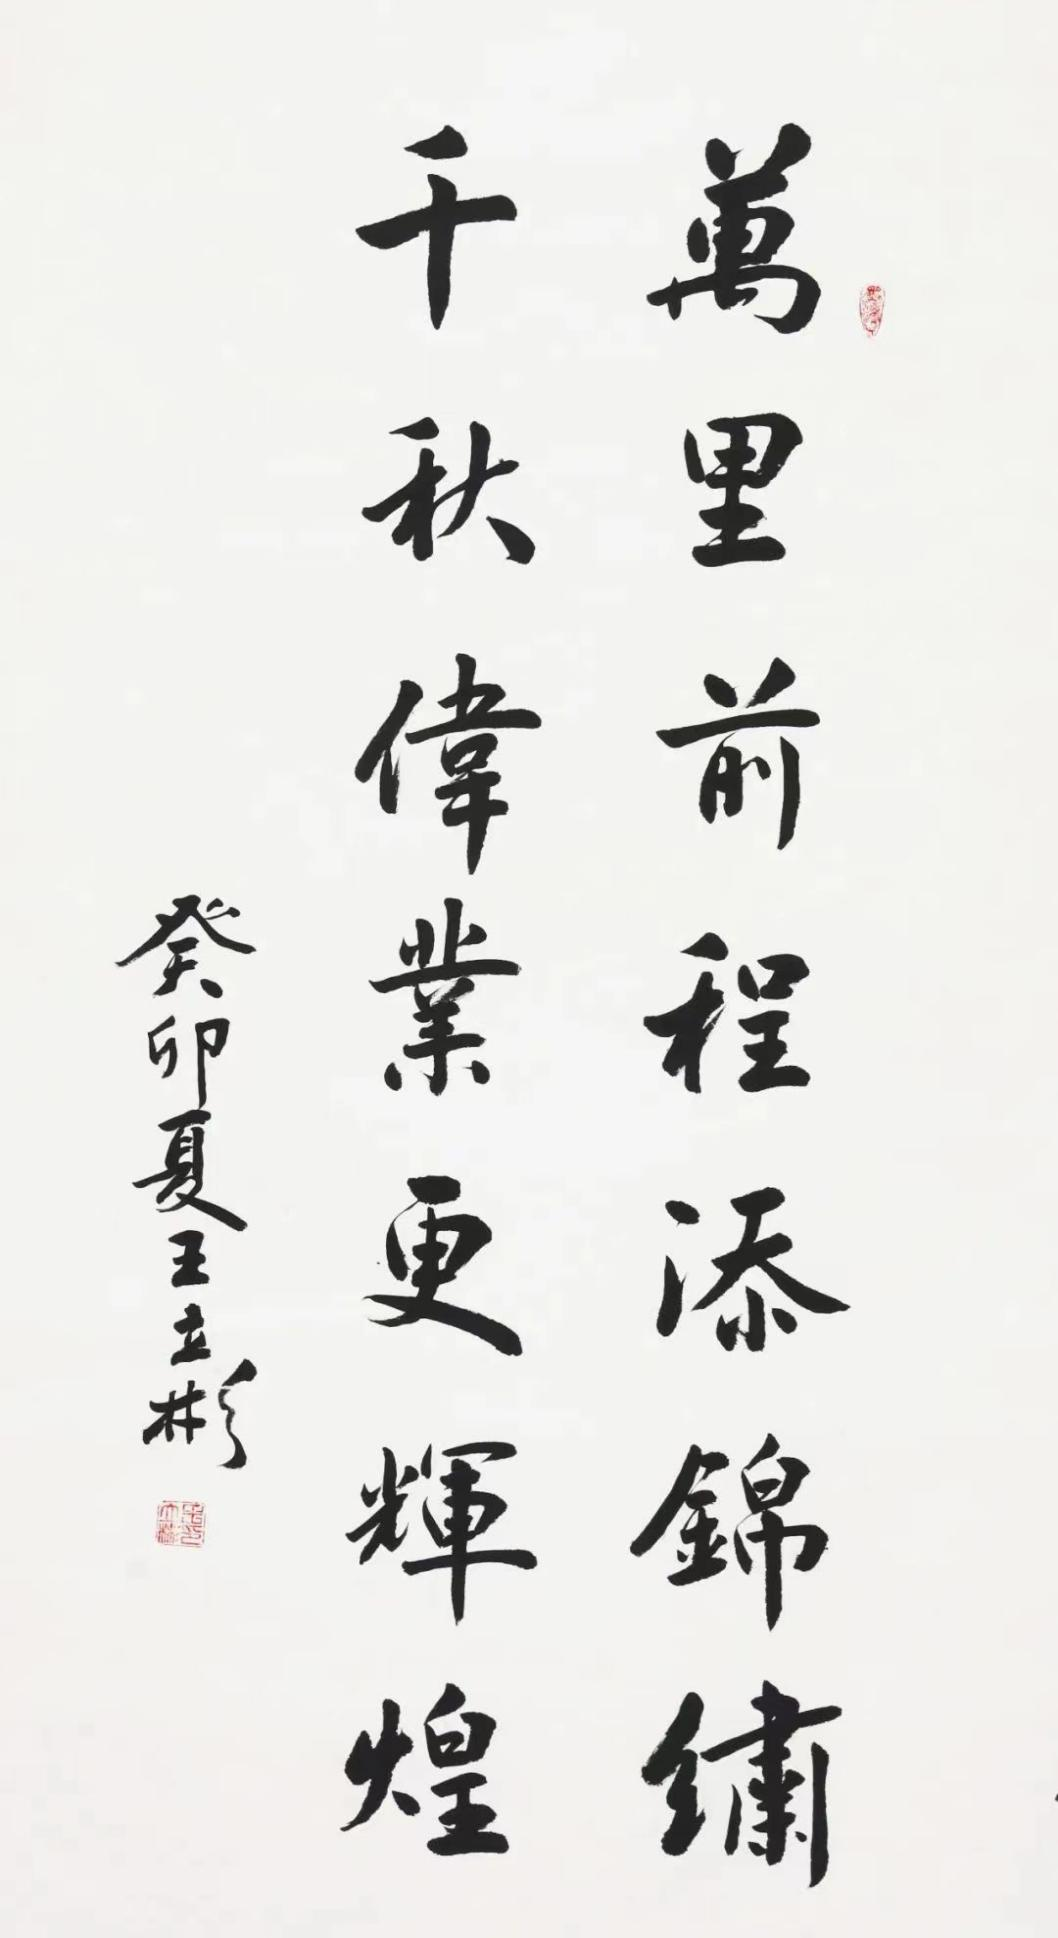 萬里前程添錦繡
千秋偉業更輝煌
癸卯夏王立彬